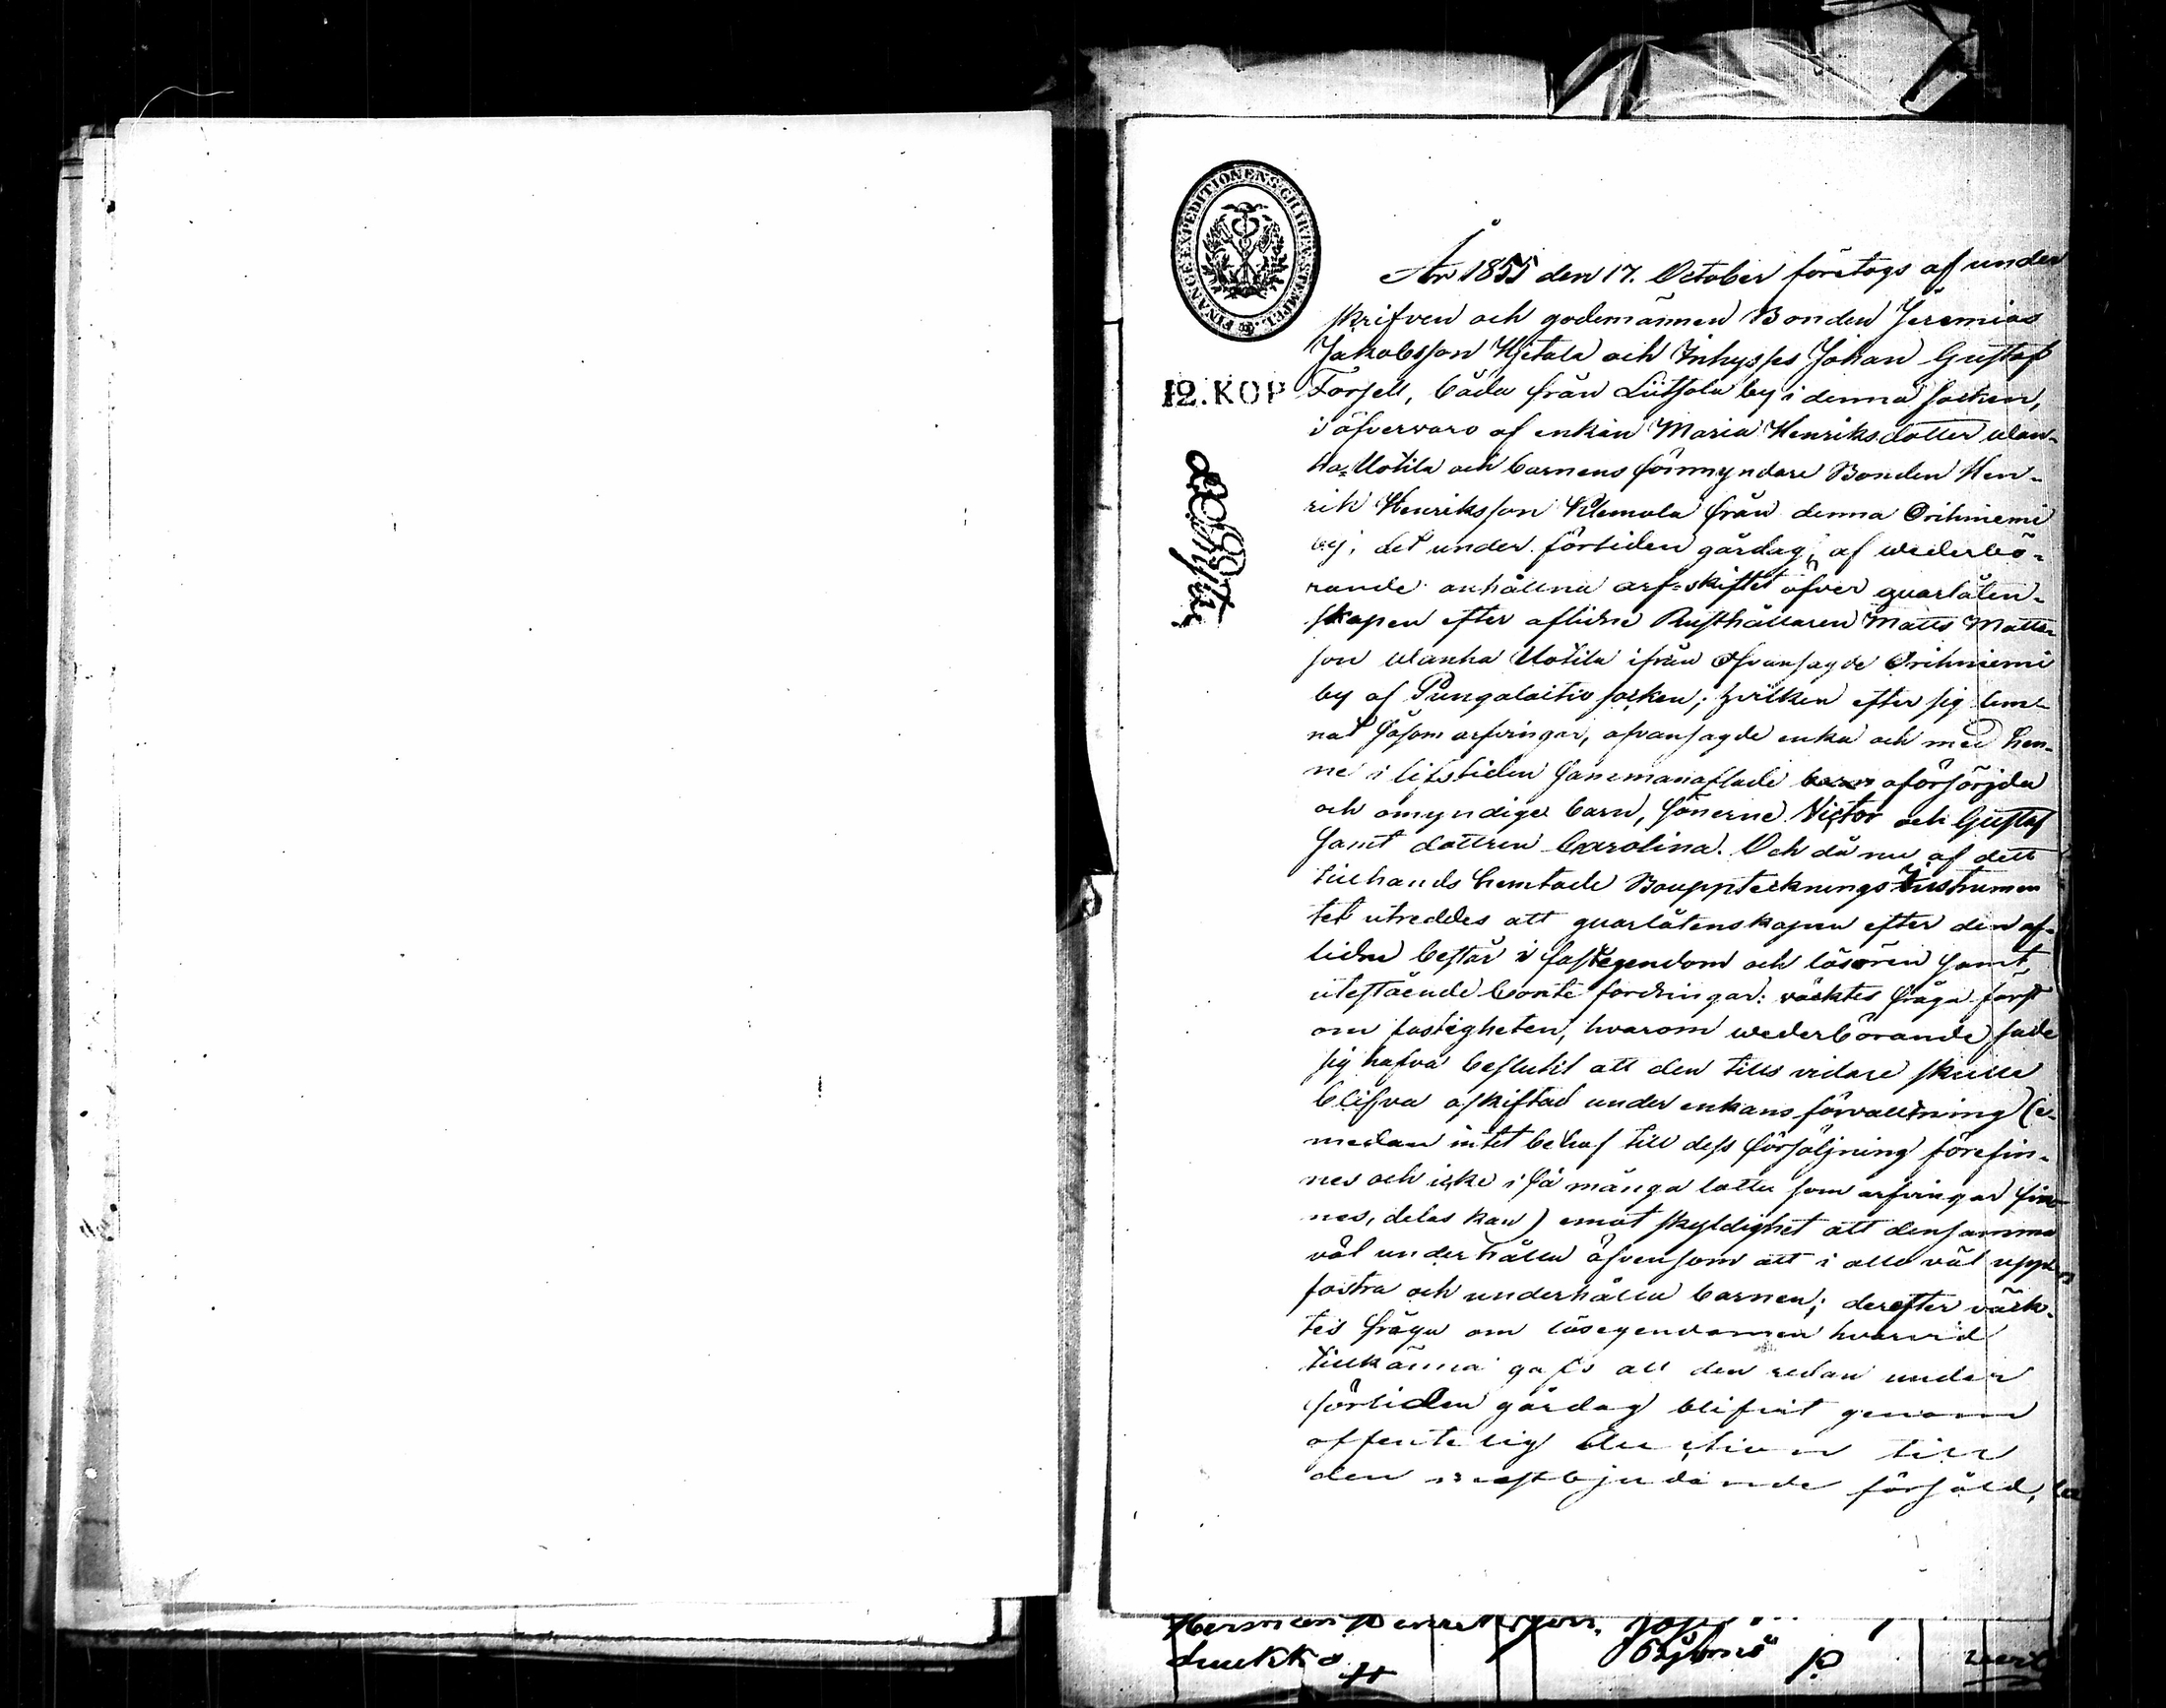 FINANCE EXPEDITIONENS CHARTÆ STEMPEL.
12. KOP
År 1855 den 17. October företogs af under
skrifven och godemännen Bonden Jeremias
Jakobsson Hjetala och Inhyses Johan Gustaf
Forsell, båda från Liitsola by i denna socken,
i öfvervaro af enkan Maria Henriksdotter wan-
ha=Uotila och barnens förmyndare Bonden Hen-
rik Henriksson Klemola från denna Orihniemi
by, det under förliden gårdag, af wederbö-
rande anhållna arf=skiftet öfver quarlåten-
skapen efter aflidne Rusthållaren Matts Matts-
son wanha Uotila ifrån ofvansagde Orihniemi
by af Pungalaitio socken; hvilken efter sig lem-
nat såsom arfvingar, ofvansagde enka och med hen-
ne i lifstiden sammanaflade barn oförsörjda
och omyndiga barn, sönerne Victor och Gustaf
samt dottren Carolina. Och då nu af dett
tillhands hemtade Bouppteknings Instrumen
tet utreddes att quarlåtenskapen efter den af-
lidne består i fastegendom och lösören samt
utestående fordringar: väcktes fråga först
om fastigheten, hvarom wederbörande sade
sig hafva beslutit att den tills vidare skulle
blifva oskiftad under enkans förvalltning (e-
medan intet behof till dess försäljning förefin-
nes och icke i så många lotter som arfvingar fin-
nes, delas kan) emot skyldighet att densamma
väl underhålla äfvensom att i allo väl upp
fostra och underhålla barnen; derefter väck-
tes fråga om lösegendomen hvarvid
tillkänna gafs att den redan under
förliden gårdag blifvit genom
offentelig Auction till
den mestbjudande försåld,
Luukka